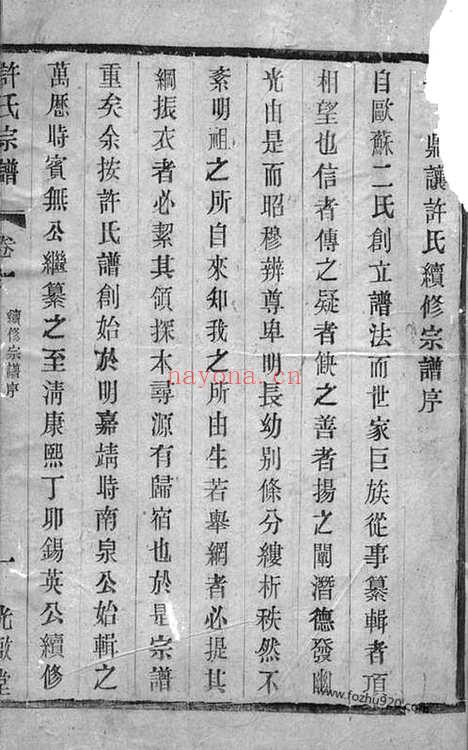 鼎讓許氏續修宗譜序
自歐蘇二氏創立譜法而世家巨族從事纂輯者項
相望也信者傳之疑者缺之善者揚之闡潛德發幽
光由是而昭穆辨尊卑明長幼別條分縷析秩然不
紊明祖之所自來知我之所由生若舉網者必提其
綱振衣者必絜其領探本尋源有歸宿也於是宗譜
重矣余按許氏譜創始於明嘉靖時南泉公始輯之
萬歷時賓無公繼纂之至淸康熙丁卯錫英公續修
許氏宗譜
卷一
續修宗譜序
一
光啟堂
nayona.cn
www.fozhu920.com